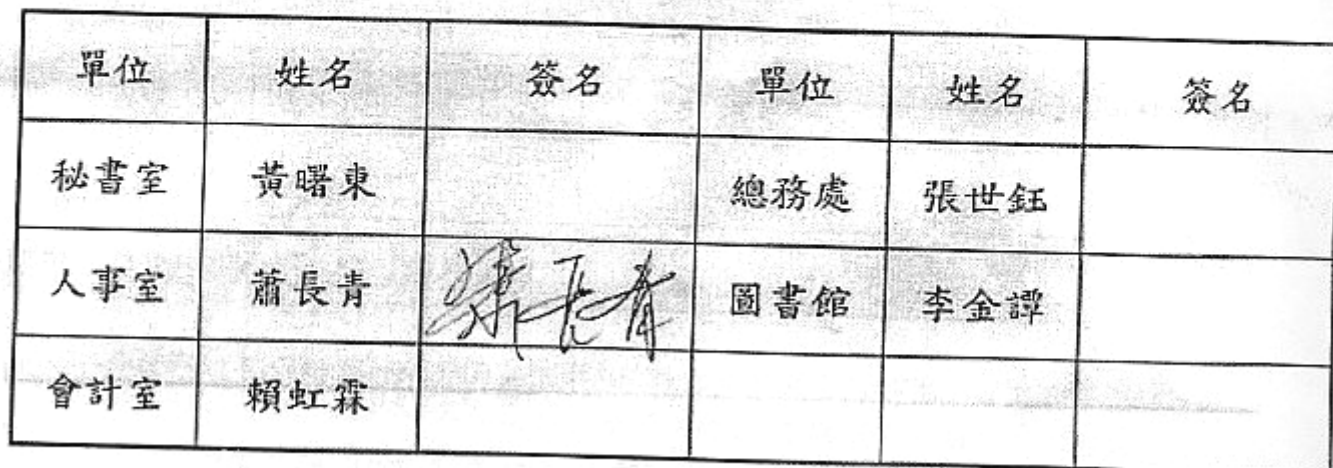 單位 姓名 簽名 單位 姓名 簽名
秘書室 黃曙東 總務處 張世鈺
人事室 蕭長青 蕭長青 圖書館 李金譚
會計室 賴虹霖